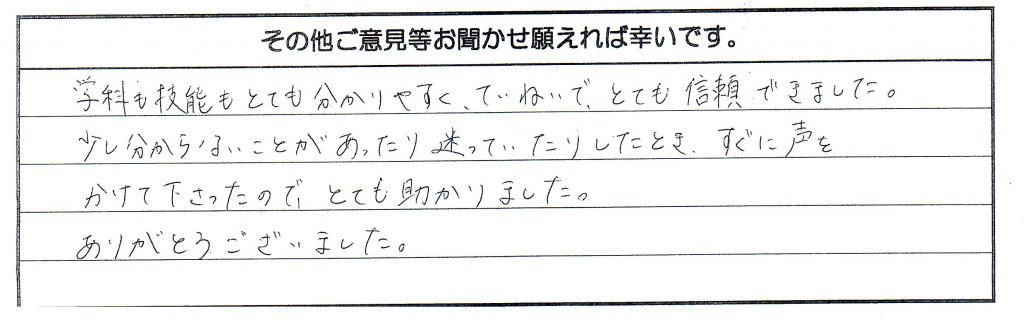 その他ご意見等お聞かせ願えれば幸いです。
学科も技能もとても分かりやすく、ていねいで、とても信頼できました。
少し分からないことがあったり迷っていたりしたとき、すぐに声を
かけて下さったので、とても助かりました。
ありがとうございました。